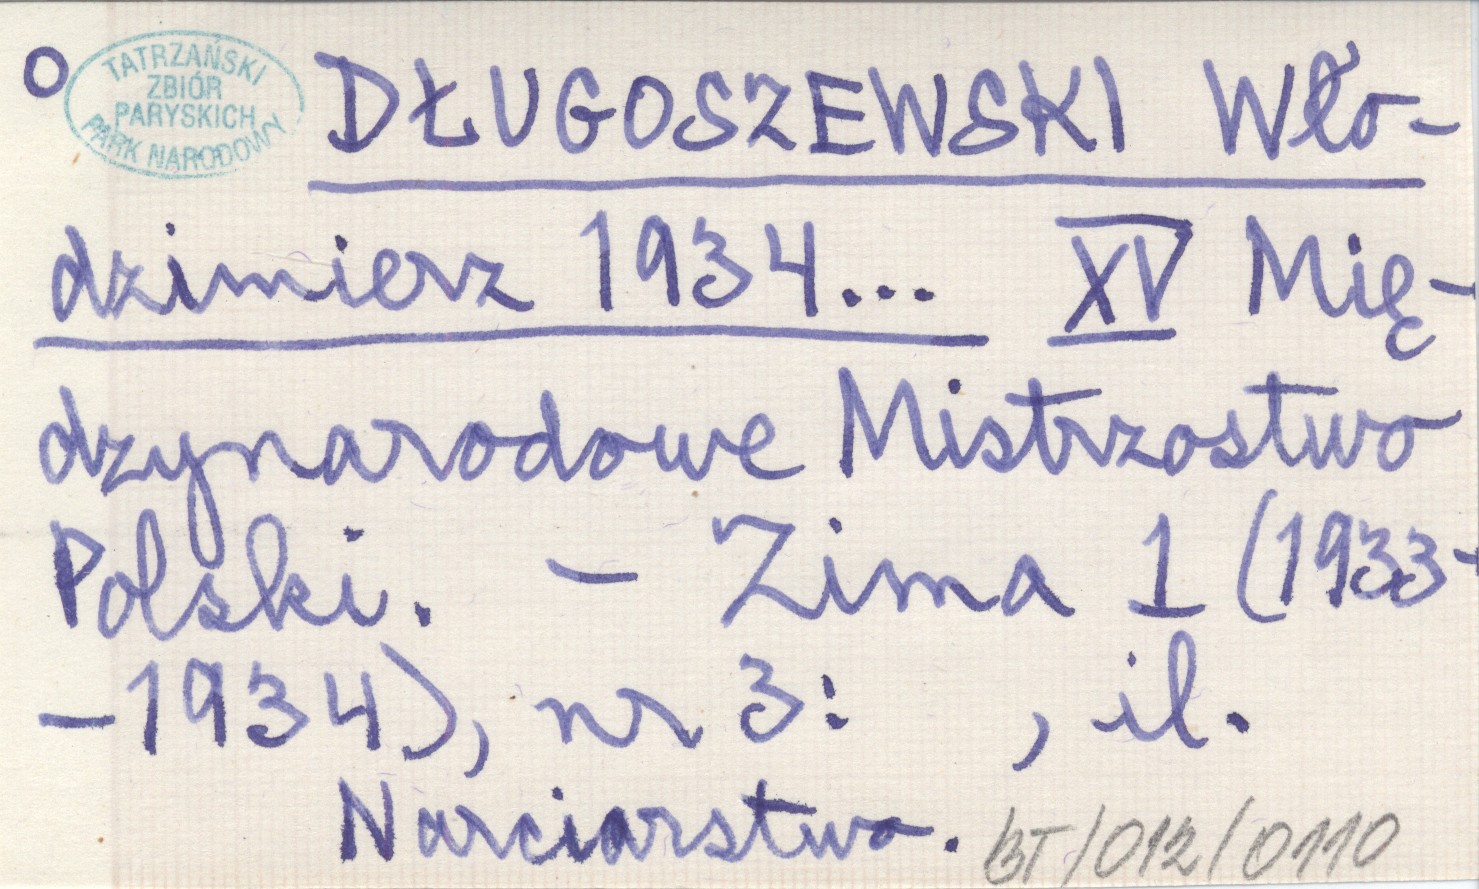 O
TATRZAŃSKI
ZBIÓR
PARYSKICH
PARK NARODOWY
DŁUGOSZEWSKI Wło-
dzimierz 1934... XV Mię-
dzynarodowe Mistrzostwo
Polski. – Zima 1 (1933-
-1934), nr 3: , il.
Narciarstwo.
BT/012/0110